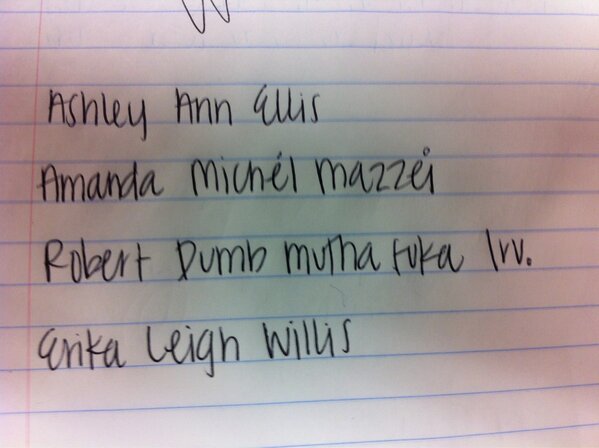 Ashley Ann Ellis
Amanda Michél Mazzei
Robert Dumb mutha fuka Irv.
Erika Leigh Willis